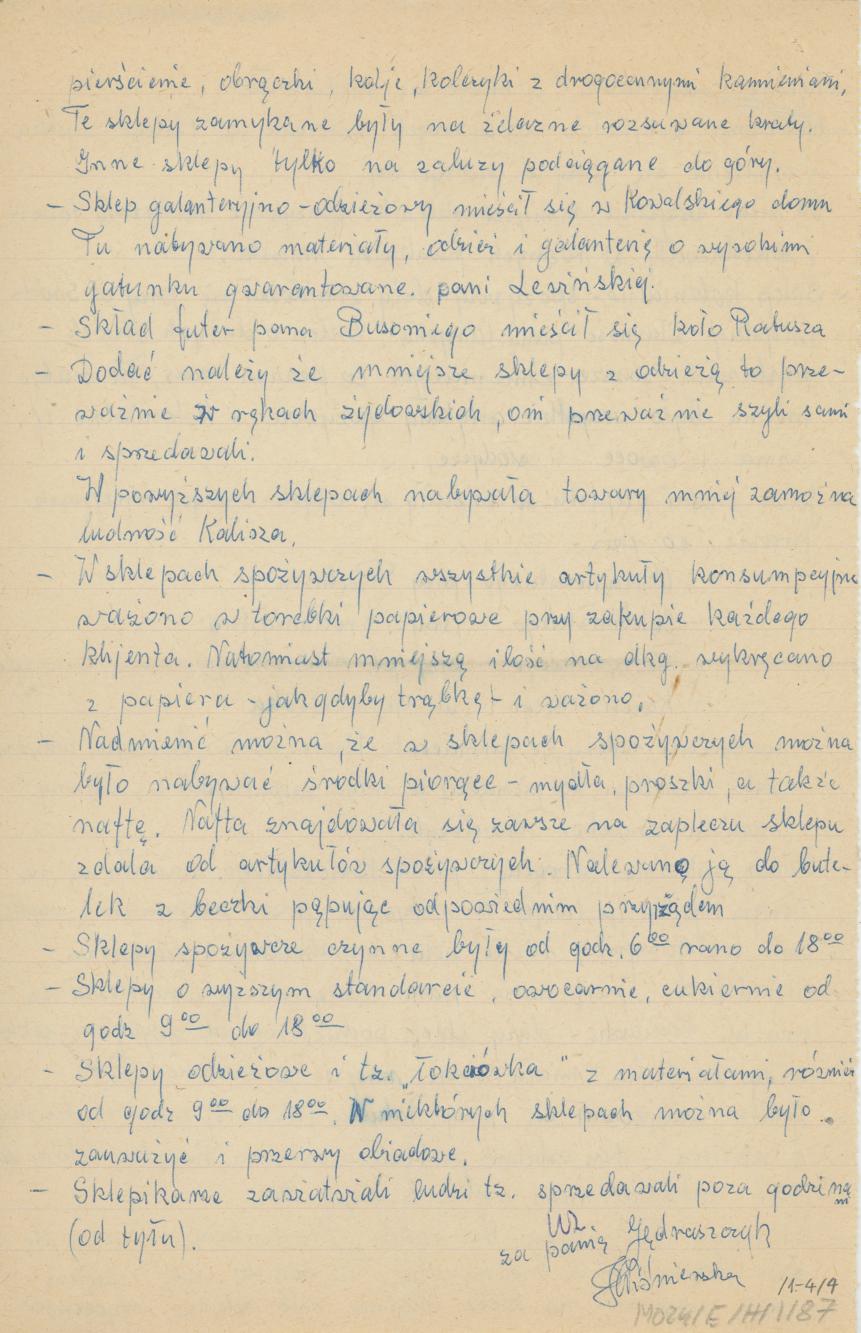 pierścienie, obrączki, kolje, kolczyki z drogocennymi kamieniami,
Te sklepy zamykane były na żelazne rozsuwane kraty.
Inne sklepy tylko na żaluzy podciągane do góry.
– Sklep galanteryjno-odzieżowy mieścił się w Kowalskiego domu
Tu nabywano materiały, odzież i galanterię o wysokim
gatunku gwarantowane. pani Lewińskiej.
– Skład futer pana Busoniego mieścił się koło Ratusza
– Dodać należy że mniejsze sklepy z odzieżą to prze-
ważnie w rękach żydowskich, oni przeważnie szyli sami
i sprzedawali.
W powyższych sklepach nabywała towary mniej zamożna
ludność Kalisza.
– W sklepach spożywczych wszystkie artykuły konsumpcyjne
ważono w torebki papierowe przy zakupie każdego
klijenta. Natomiast mniejszą ilość na dkg. wykręcano
z papieru – jak gdyby trąbkę – i ważono.
– Nadmienić można, że w sklepach spożywczych można
było nabywać środki piorące – mydła, proszki, a także
naftę. Nafta znajdowała się zawsze na zapleczu sklepu
zdala od artykułów spożywczych. Nalewano ją do bute-
lek z beczki pąpując odpowiednim przyrządem
– Sklepy spożywcze czynne były od godz. 6⁰⁰ rano do 18⁰⁰
– Sklepy o wyższym standarcie, owocarnie, cukiernie od
godz 9⁰⁰ do 18⁰⁰
– Sklepy odzieżowe i tz. „łokciówka" z materiałami, również
od godz 9⁰⁰ do 18⁰⁰. W niektórych sklepach można było
zauważyć i przerwy obiadowe.
– Sklepikarze załatwiali ludzi tz. sprzedawali poza godzinami
(od tyłu).
Wz
za panią Jędraszczyk
Wiśniewska
/1-4/4
MOZK/E/III/1/87